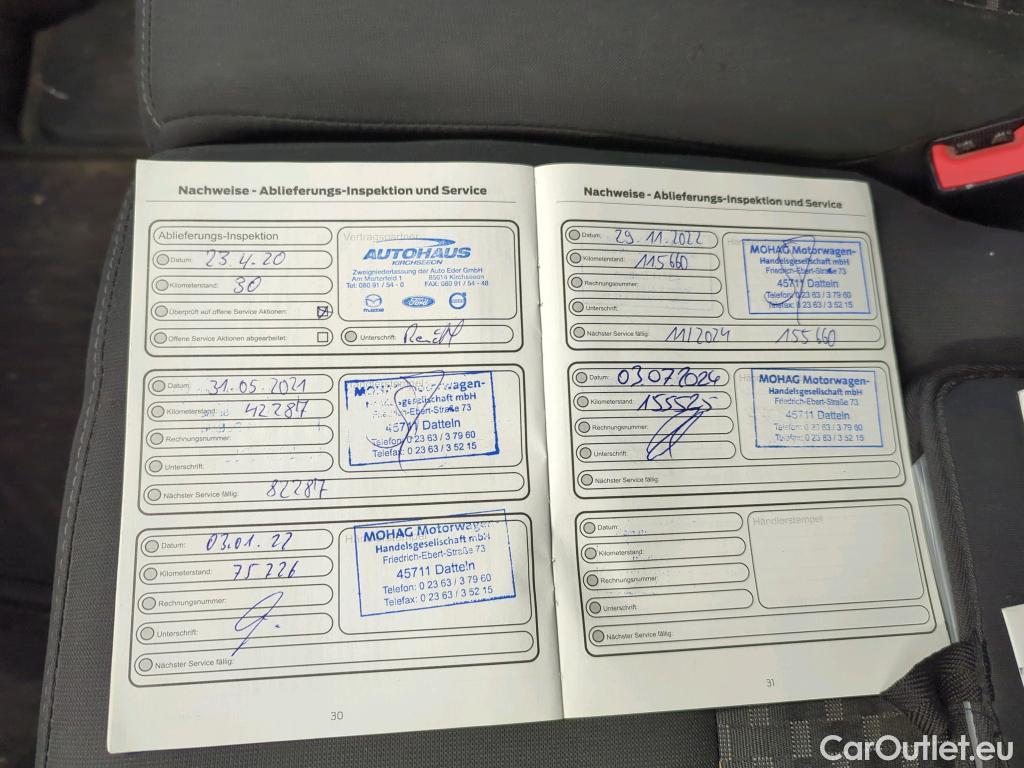 Nachweise - Ablieferungs-Inspektion und Service
Ablieferungs-Inspektion
Datum: 23.4.20
Kilometerstand: 30
Überprüft auf offene Service Aktionen:
Offene Service Aktionen abgearbeitet:
Vertragspartner
AUTOHAUS
KIRCHSEEON
Zweigniederlassung der Auto Eder GmbH
Am Marterfeld 1 85614 Kirchseeon
Tel: 080 91 / 54 - 0 FAX: 080 91 / 54 - 48
mazda Ford VOLVO
Unterschrift:
Datum: 31.05.2021
Kilometerstand: 42287
Rechnungsnummer:
Unterschrift:
Nächster Service fällig: 82287
MOHAG Motorwagen-
Handelsgesellschaft mbH
Friedrich-Ebert-Straße 73
45711 Datteln
Telefon: 0 23 63 / 3 79 60
Telefax: 0 23 63 / 3 52 15
Datum: 03.01.22
Kilometerstand: 75726
Rechnungsnummer:
Unterschrift:
Nächster Service fällig:
MOHAG Motorwagen-
Handelsgesellschaft mbH
Friedrich-Ebert-Straße 73
45711 Datteln
Telefon: 0 23 63 / 3 79 60
Telefax: 0 23 63 / 3 52 15
30
Nachweise - Ablieferungs-Inspektion und Service
Datum: 29.11.2022
Kilometerstand: 115660
Rechnungsnummer:
Unterschrift:
Nächster Service fällig: 11/2024 155660
MOHAG Motorwagen-
Handelsgesellschaft mbH
Friedrich-Ebert-Straße 73
45711 Datteln
Telefon: 0 23 63 / 3 79 60
Telefax: 0 23 63 / 3 52 15
Datum: 03.07.2024
Kilometerstand: 155525
Rechnungsnummer:
Unterschrift:
Nächster Service fällig:
MOHAG Motorwagen-
Handelsgesellschaft mbH
Friedrich-Ebert-Straße 73
45711 Datteln
Telefon: 0 23 63 / 3 79 60
Telefax: 0 23 63 / 3 52 15
Datum:
Kilometerstand:
Rechnungsnummer:
Unterschrift:
Nächster Service fällig:
Händlerstempel
31
CarOutlet.eu